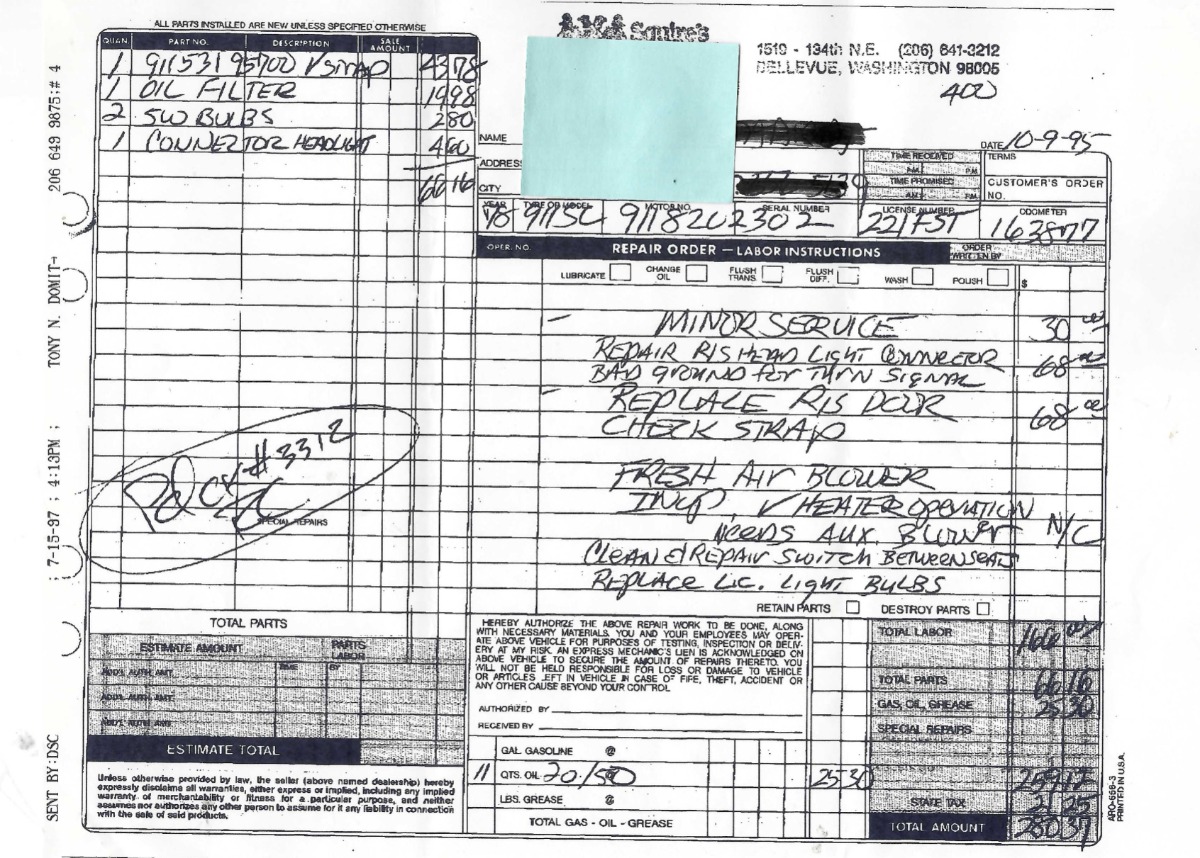 ALL PARTS INSTALLED ARE NEW UNLESS SPECIFIED OTHERWISE
QUAN. PART NO. DESCRIPTION SALE AMOUNT
1 911 531 95700 V STRAP 43 78
1 OIL FILTER 19 98
2 5W BULBS 2 80
1 CONNECTOR HEADLIGHT
66 16
Squire's
1510 - 134th N.E. (206) 641-3212
BELLEVUE, WASHINGTON 98005
400
NAME
DATE 10-9-95
ADDRESS
TIME RECEIVED
A.M. P.M.
TERMS
CITY
TIME PROMISED
A.M. P.M.
CUSTOMER'S ORDER NO.
YEAR TYPE OR MODEL MOTOR NO. SERIAL NUMBER LICENSE NUMBER ODOMETER
78 911SC 9118202302 221FST 163877
OPER. NO. REPAIR ORDER — LABOR INSTRUCTIONS ORDER WRITTEN BY
LUBRICATE CHANGE OIL FLUSH TRANS. FLUSH DIFF. WASH POLISH $
— MINOR SERVICE 30 00
REPAIR R/S HEAD LIGHT CONNECTOR 68 00
BAD GROUND FOR TURN SIGNAL
— REPLACE R/S DOOR 68 00
CHECK STRAP
FRESH AIR BLOWER
INOP, ✓ HEATER OPERATION
NEEDS AUX. BLOWER N/C
CLEAN & REPAIR SWITCH BETWEEN SEATS
REPLACE LIC. LIGHT BULBS
Pd ck # 3312
SPECIAL REPAIRS
RETAIN PARTS DESTROY PARTS
TOTAL PARTS
ESTIMATE AMOUNT PARTS LABOR
ADD'L AUTH AMT. TIME BY
ADD'L AUTH AMT.
ADD'L AUTH AMT.
ESTIMATE TOTAL
Unless otherwise provided by law, the seller (above named dealership) hereby
expressly disclaims all warranties, either express or implied, including any implied
warranty of merchantability or fitness for a particular purpose, and neither
assumes nor authorizes any other person to assume for it any liability in connection
with the sale of said products.
I HEREBY AUTHORIZE THE ABOVE REPAIR WORK TO BE DONE, ALONG
WITH NECESSARY MATERIALS. YOU AND YOUR EMPLOYEES MAY OPER-
ATE ABOVE VEHICLE FOR PURPOSES OF TESTING, INSPECTION OR DELIV-
ERY AT MY RISK. AN EXPRESS MECHANIC'S LIEN IS ACKNOWLEDGED ON
ABOVE VEHICLE TO SECURE THE AMOUNT OF REPAIRS THERETO. YOU
WILL NOT BE HELD RESPONSIBLE FOR LOSS OR DAMAGE TO VEHICLE
OR ARTICLES LEFT IN VEHICLE IN CASE OF FIRE, THEFT, ACCIDENT OR
ANY OTHER CAUSE BEYOND YOUR CONTROL
AUTHORIZED BY
RECEIVED BY
GAL. GASOLINE @
11 QTS. OIL 20/50 25 30
LBS. GREASE @
TOTAL GAS - OIL - GREASE
TOTAL LABOR 166 00
TOTAL PARTS 66 16
GAS, OIL, GREASE 25 30
SPECIAL REPAIRS
STATE TAX 21 25
TOTAL AMOUNT
ARO-656-3
PRINTED IN U.S.A.
SENT BY:DSC ; 7-15-97 ; 4:13PM ; TONY N. DOMIT→ 206 649 9875;# 4